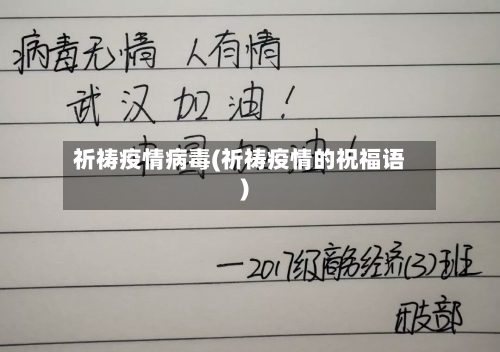 病毒无情 人有情
武汉加油！
中国加油！
祈祷疫情病毒(祈祷疫情的祝福语
)
—2017级商务经济(3)班
团支部